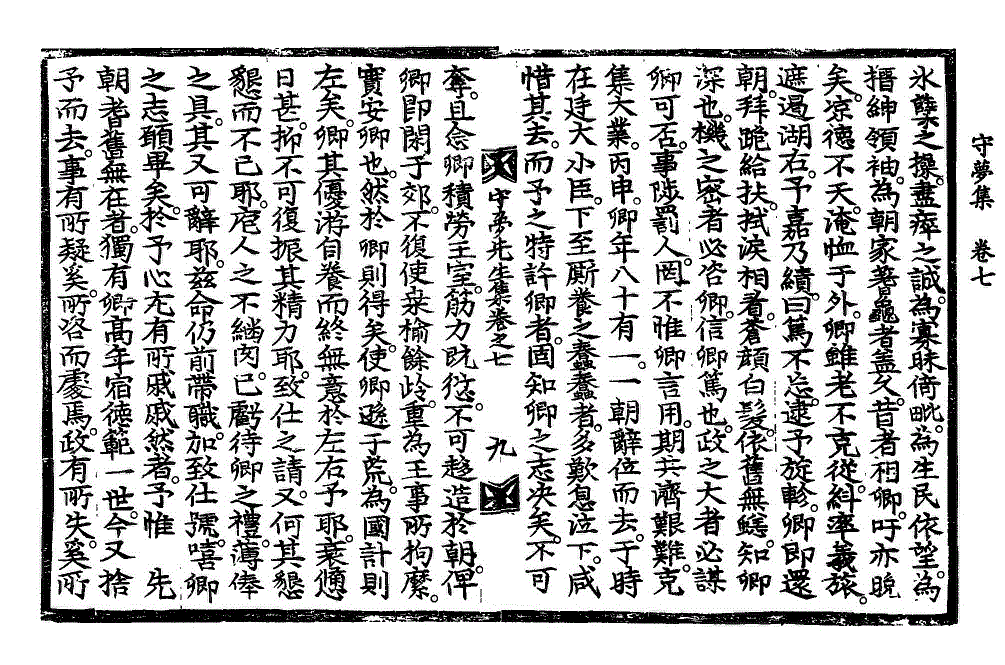 守夢集　卷七
氷蘖之操。盡瘁之誠。爲寡昧倚毗。爲生民依望。爲
搢紳領袖。爲朝家蓍龜者盖久。昔者相卿。吁亦晩
矣。凉德不天。淹恤于外。卿雖老不克從。糾率義旅。
遮遏湖右。予嘉乃績。曰篤不忘。逮予旋軫。卿卽還
朝。拜跪給扶。拭淚相看。蒼顔白髮。依舊無𧏮。知卿
深也。機之密者必咨卿。信卿篤也。政之大者必謀
卿可否。事陟罰人。罔不惟卿言用。期共濟艱難。克
集大業。丙申。卿年八十有一。一朝辭位而去。于時
在廷大小臣。下至厮養之蠢蠢者。多歎息泣下。咸
惜其去。而予之特許卿者。固知卿之志决矣。不可
守夢先生集卷之七　九
奪。且念卿積勞王室。筋力旣愆。不可趍造於朝。俾
卿卽閑于郊。不復使桑榆餘齡。重爲王事所拘縻。
實安卿也。然於卿則得矣。使卿遜于荒。爲國計則
左矣。卿其優游自養。而終無意於左右予耶。衰憊
日甚。抑不可復振其精力耶。致仕之請。又何其懇
懇而不已耶。庖人之不繼肉。已虧待卿之禮。薄俸
之具。其又可辭耶。玆命仍前帶職。加致仕號。嘻卿
之志願畢矣。於予心尤有所戚戚然者。予惟　先
朝耆舊無在者。獨有卿高年宿德。範一世。今又捨
予而去。事有所疑。奚所咨而處焉。政有所失。奚所